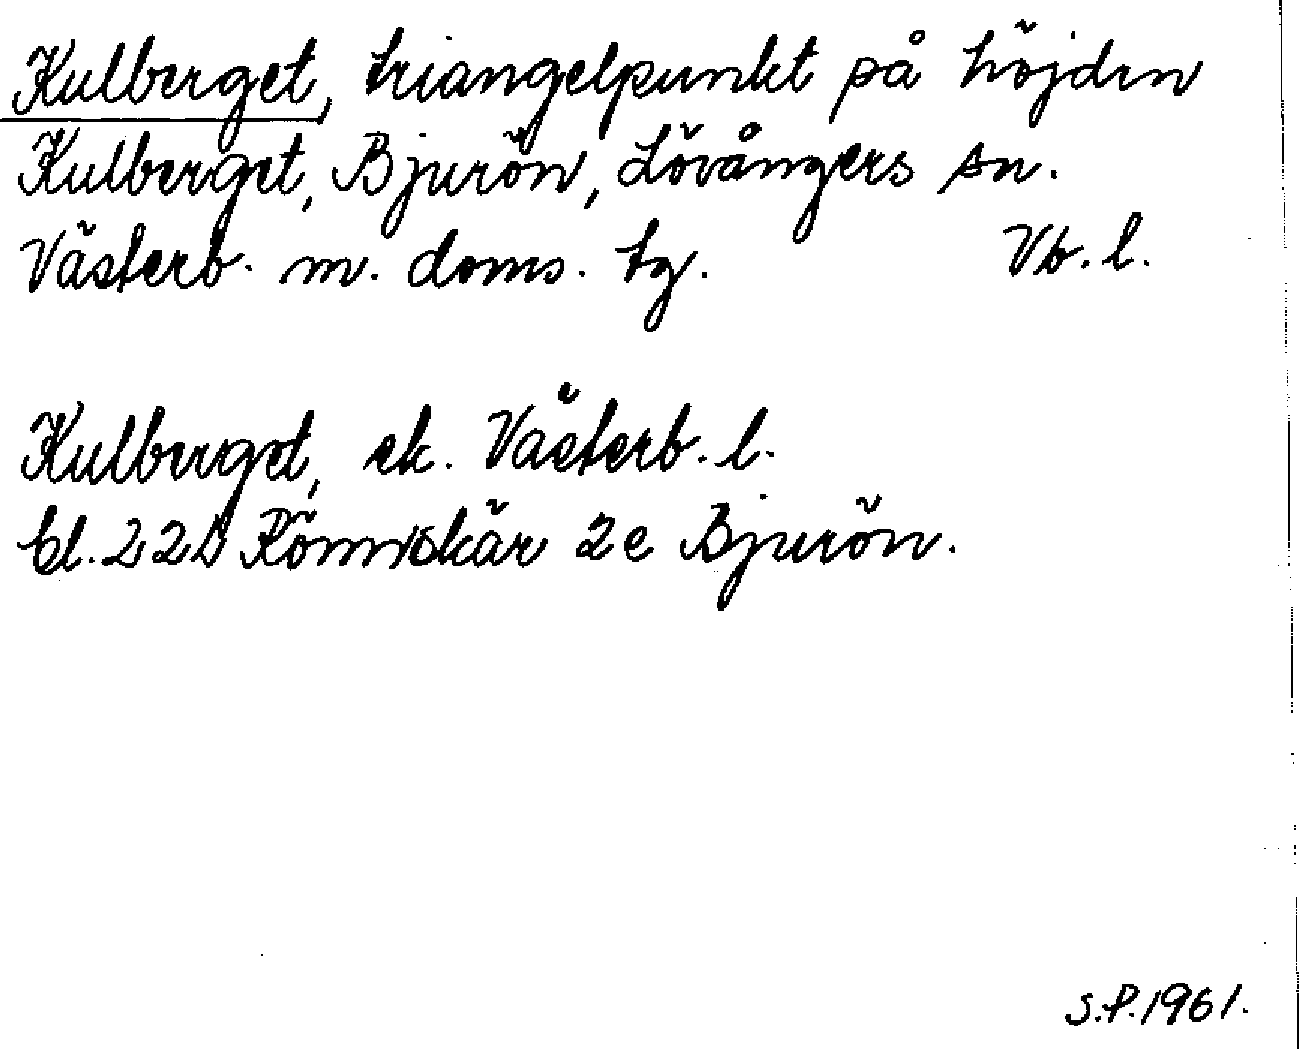 Kulberget, triangelpunkt på höjden
Kulberget, Bjurön, Lövångers sn.
Västerb. m. doms. tg. Vb. l.
Kulberget, ek. Västerb. l.
bl. 22 D Rönnskär 2e Bjurön.
S.P. 1961.